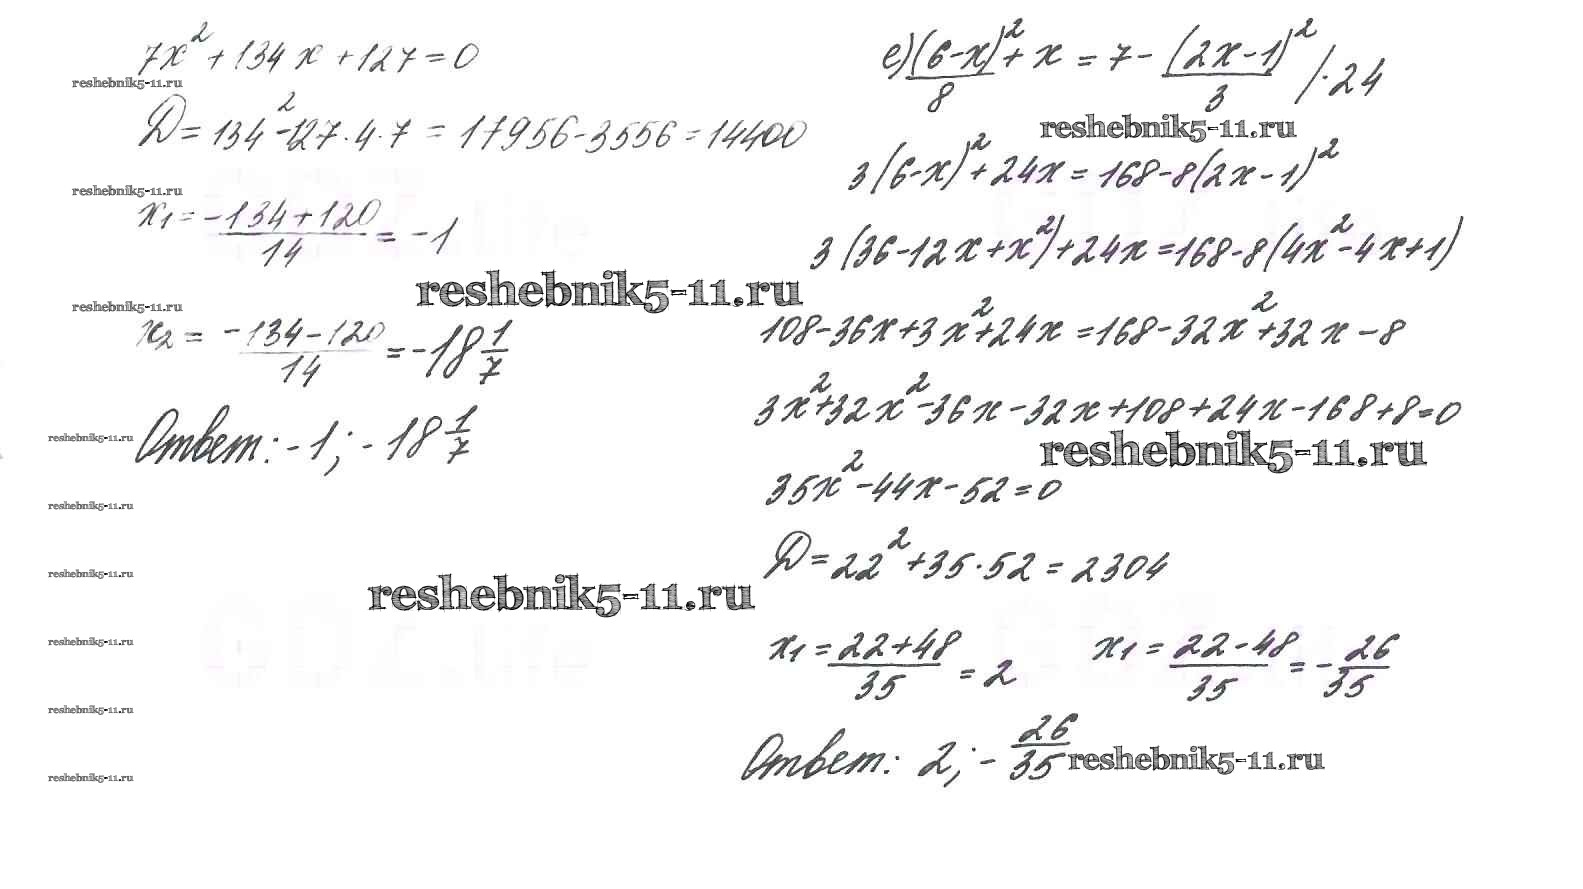 7x² + 134x + 127 = 0
reshebnik5-11.ru
D = 134² - 127 · 4 · 7 = 17956 - 3556 = 14400
reshebnik5-11.ru
x₁ = (-134 + 120)/14 = -1
reshebnik5-11.ru
reshebnik5-11.ru
x₂ = (-134 - 120)/14 = -18 1/7
Ответ: -1; -18 1/7
reshebnik5-11.ru
reshebnik5-11.ru
reshebnik5-11.ru
reshebnik5-11.ru
reshebnik5-11.ru
reshebnik5-11.ru
reshebnik5-11.ru
е) (6-x)²/8 + x = 7 - (2x-1)²/3 / · 24
reshebnik5-11.ru
3(6-x)² + 24x = 168 - 8(2x-1)²
3(36 - 12x + x²) + 24x = 168 - 8(4x² - 4x + 1)
108 - 36x + 3x² + 24x = 168 - 32x² + 32x - 8
3x² + 32x² - 36x - 32x + 108 + 24x - 168 + 8 = 0
reshebnik5-11.ru
35x² - 44x - 52 = 0
D = 22² + 35 · 52 = 2304
x₁ = (22 + 48)/35 = 2 x₁ = (22 - 48)/35 = -26/35
Ответ: 2; -26/35
reshebnik5-11.ru